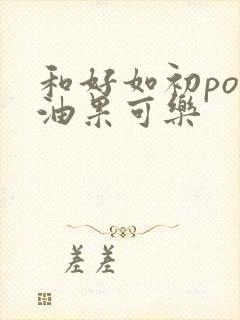 和好如初po
油果可樂
差差